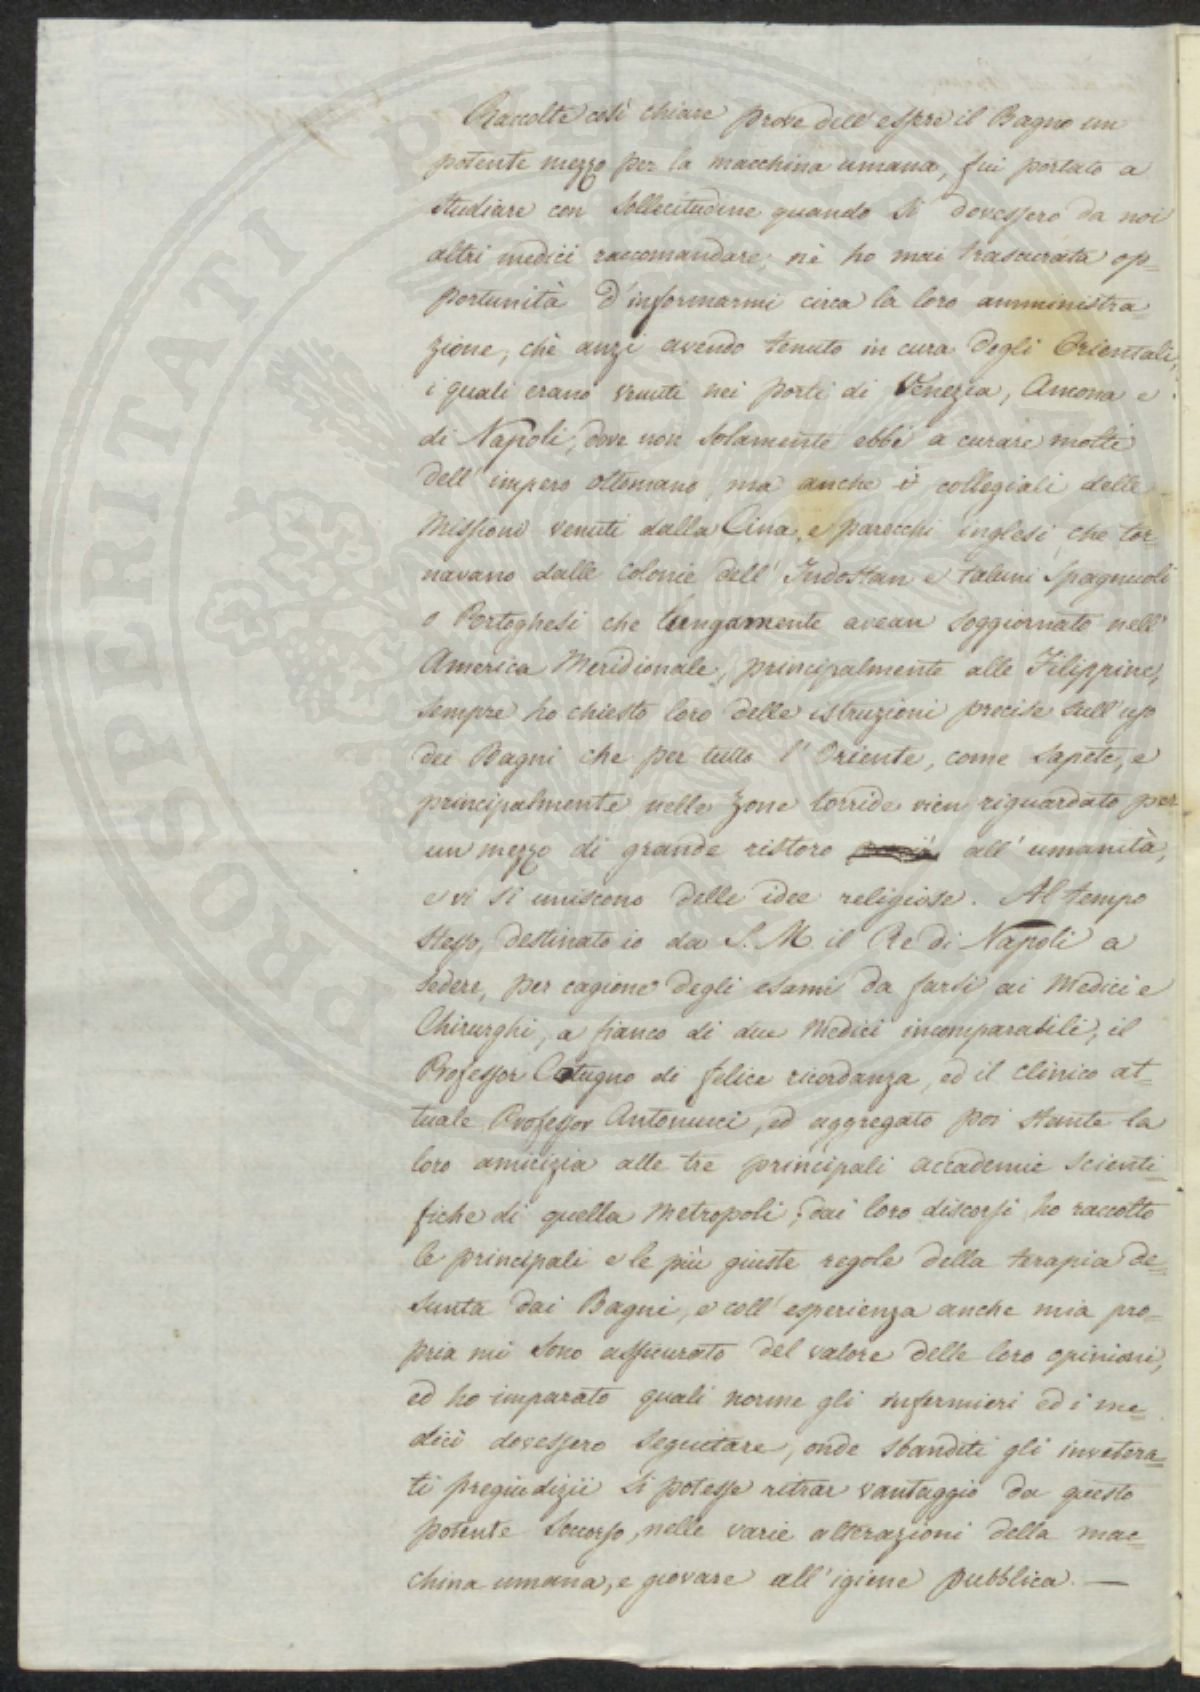 Raccolte così chiare prove dell'essere il Bagno un
potente mezzo per la macchina umana, fui portato a
studiare con sollecitudine quando si dovessero da noi
altri medici raccomandare; nè ho mai trascurata op=
portunità d'informarmi circa la loro amministra
zione, chè anzi avendo tenuto in cura degli Orientali,
i quali erano venuti nei porti di Venezia, Ancona e
di Napoli, dove non solamente ebbi a curare molti
dell'impero ottomano, ma anche i collegiali delle
Missioni venuti dalla Cina, e parecchi inglesi che tor=
navano dalle colonie dell'Indostan e taluni Spagnuoli
o Portoghesi che lungamente avean soggiornato nell'
America Meridionale, principalmente alle Filippine,
sempre ho chiesto loro delle istruzioni precise sull'uso
dei Bagni che per tutto l'Oriente, come sapete, e
principalmente nelle Zone torride vien riguardato per
un mezzo di grande ristoro all'umanità,
e vi si uniscono delle idee religiose. Al tempo
stesso, destinato io da S. M. il Re di Napoli a
sedere, per cagione degli esami da farsi ai Medici e
Chirurghi, a fianco di due Medici incomparabili, il
Professor Cotugno di felice ricordanza, ed il clinico at=
tuale Professor Antonucci, ed aggregato poi stante la
loro amicizia alle tre principali accademie scienti=
fiche di quella Metropoli, dai loro discorsi ho raccolto
le principali e le più giuste regole della terapia de=
sunta dai Bagni, e coll'esperienza anche mia pro=
pria mi sono assicurato del valore delle loro opinioni,
ed ho imparato quali norme gli infermieri ed i me=
dici dovessero seguitare, onde sbanditi gli invetera=
ti pregiudizii si potesse ritrar vantaggio da questo
potente soccorso, nelle varie alterazioni della mac=
china umana, e giovare all'igiene pubblica. —
PROSPERITATI PUBLICAE